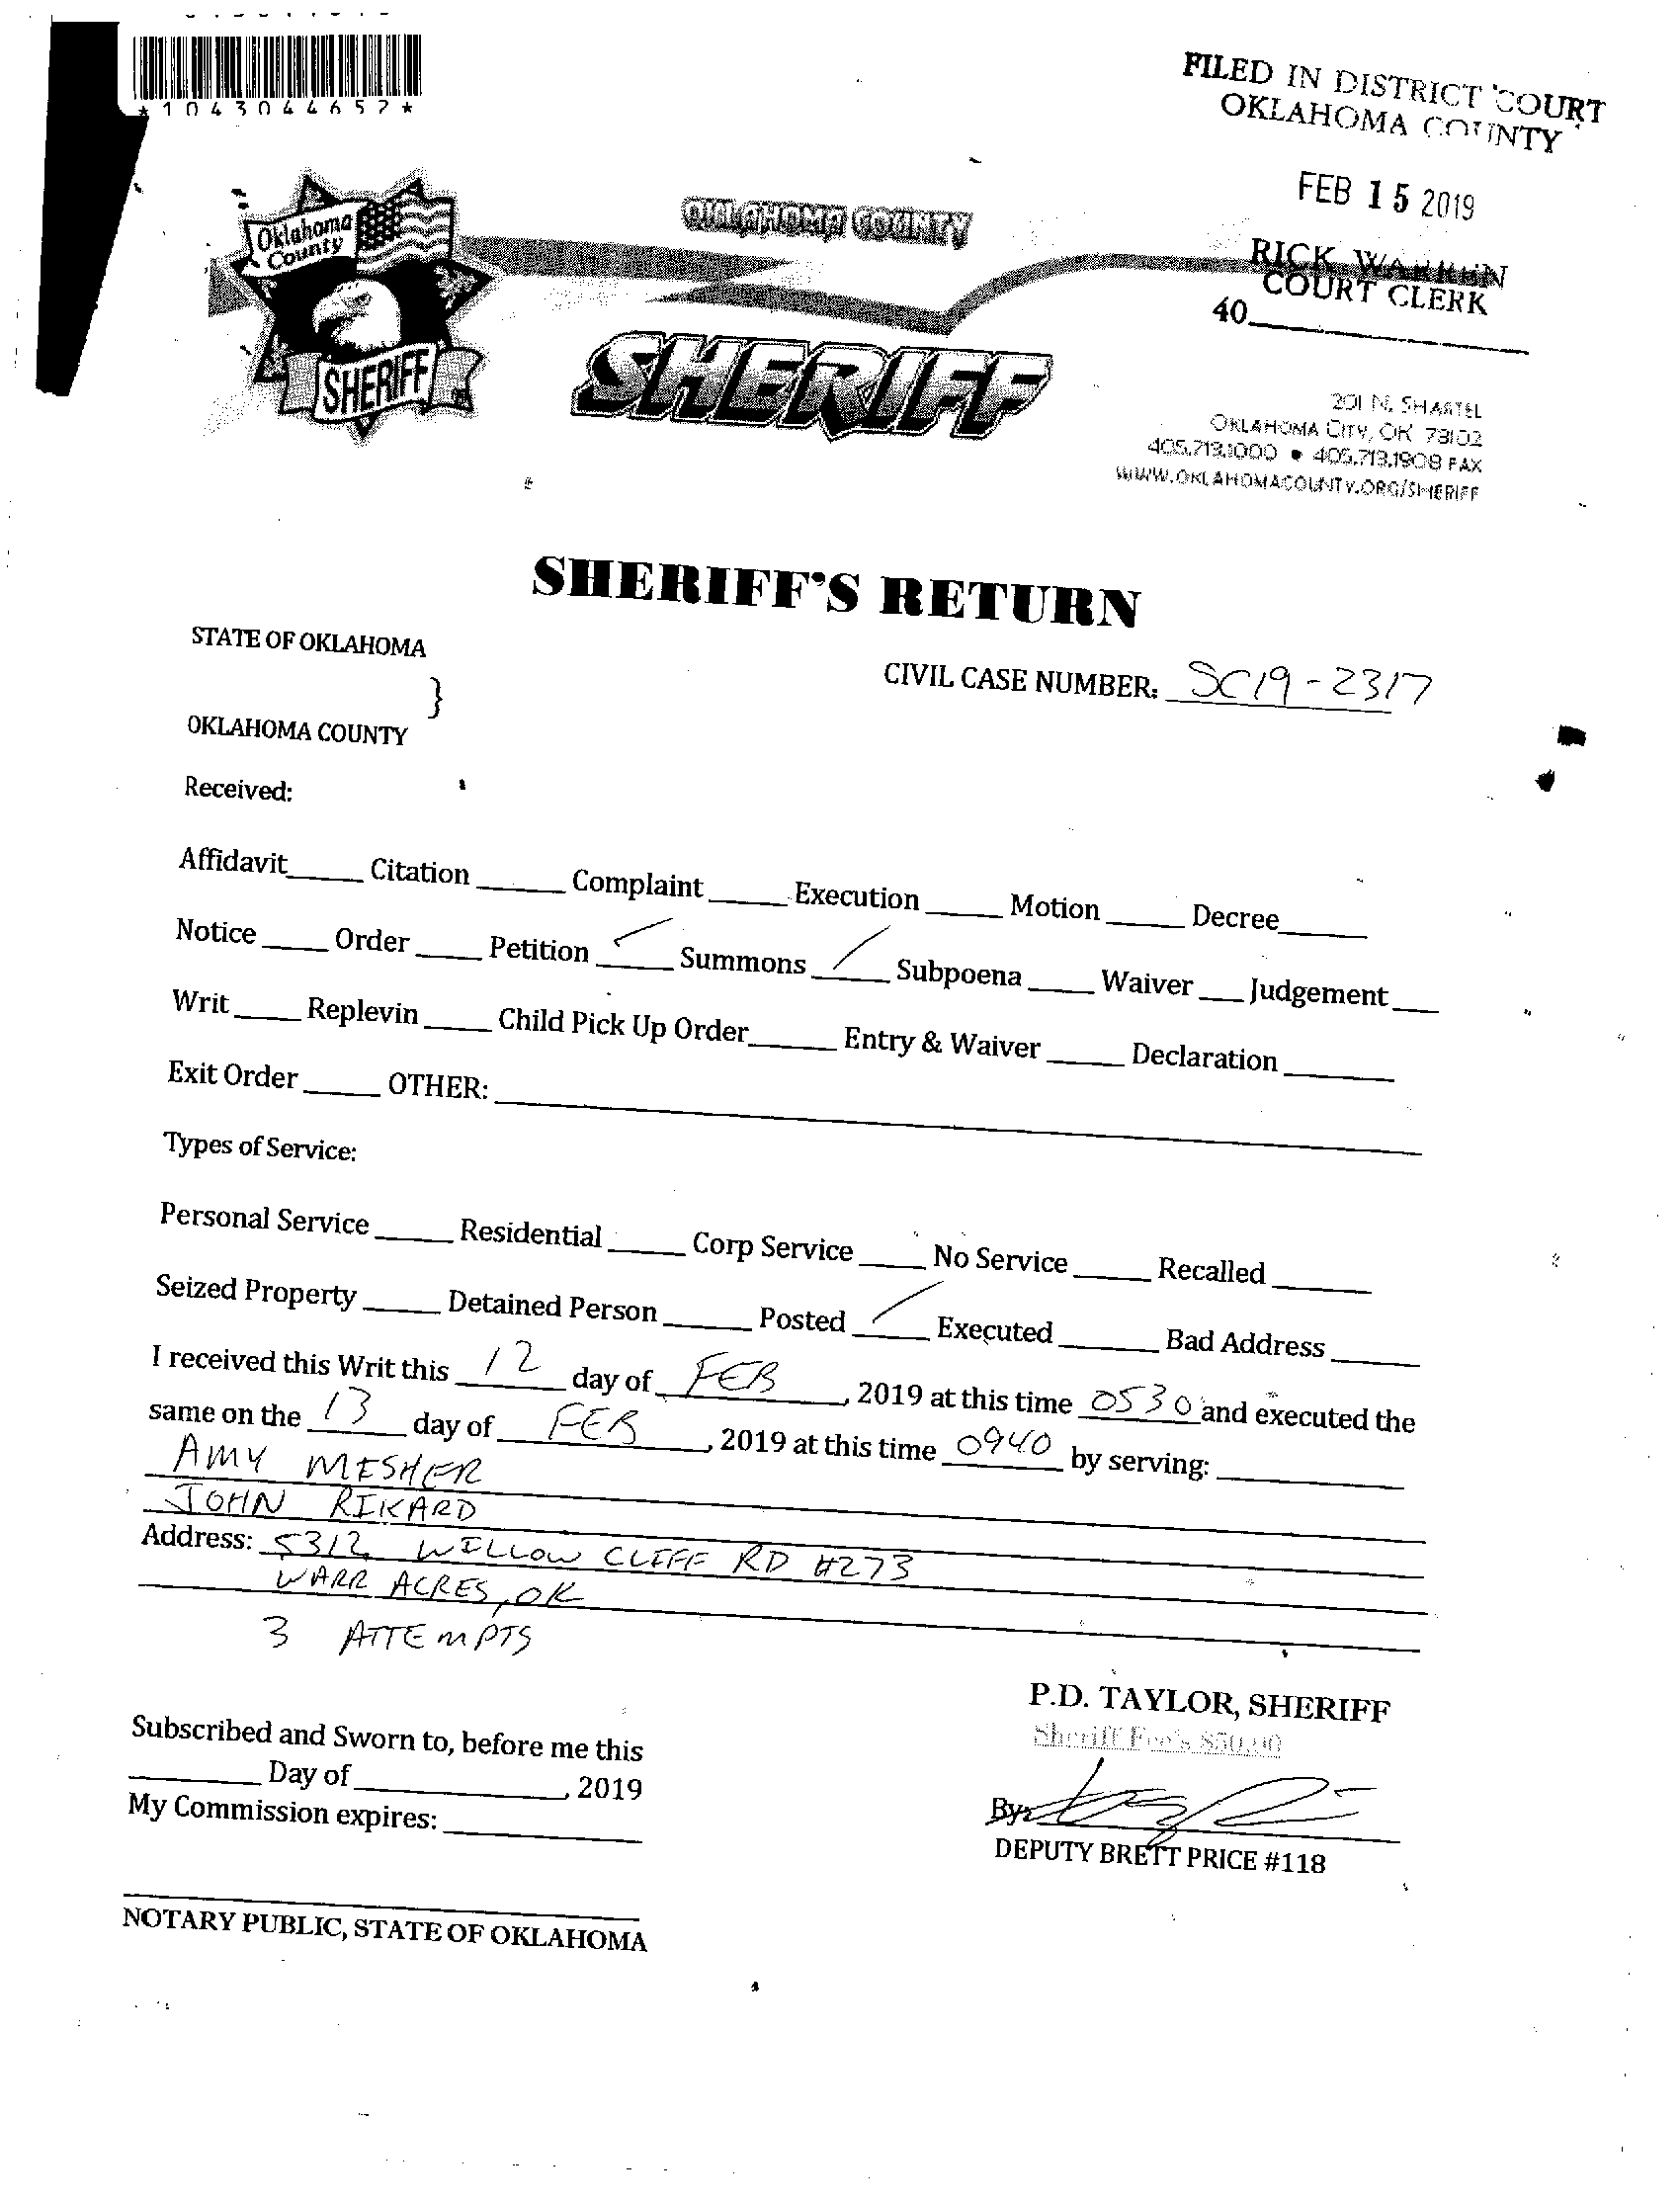 *1043044657*
FILED IN DISTRICT COURT
OKLAHOMA COUNTY
FEB 15 2019
RICK WARREN
COURT CLERK
40
Oklahoma
County
SHERIFF
OKLAHOMA COUNTY
SHERIFF
201 N. SHARTEL
OKLAHOMA CITY, OK 73102
405.713.1000 • 405.713.1908 FAX
WWW.OKLAHOMACOUNTY.ORG/SHERIFF
SHERIFF'S RETURN
STATE OF OKLAHOMA
}
CIVIL CASE NUMBER: SC19-2317
OKLAHOMA COUNTY
Received:
Affidavit____ Citation ____ Complaint ____ Execution ____ Motion ____ Decree____
Notice ____ Order ____ Petition __✓__ Summons __✓__ Subpoena ____ Waiver ___ Judgement ___
Writ ____ Replevin ____ Child Pick Up Order____ Entry & Waiver ____ Declaration ____
Exit Order ____ OTHER: ____
Types of Service:
Personal Service ____ Residential ____ Corp Service ____ No Service ____ Recalled ____
Seized Property ____ Detained Person ____ Posted __✓__ Executed ____ Bad Address ____
I received this Writ this 12 day of FEB, 2019 at this time 0530 and executed the
same on the 13 day of FEB, 2019 at this time 0940 by serving: ____
AMY MESHER
JOHN RIKARD
Address: 5312 WILLOW CLIFF RD #273
WARR ACRES, OK
3 ATTEMPTS
P.D. TAYLOR, SHERIFF
Sheriff Fee's $50.00
Subscribed and Sworn to, before me this
____ Day of ____, 2019
My Commission expires: ____
By:
DEPUTY BRETT PRICE #118
NOTARY PUBLIC, STATE OF OKLAHOMA